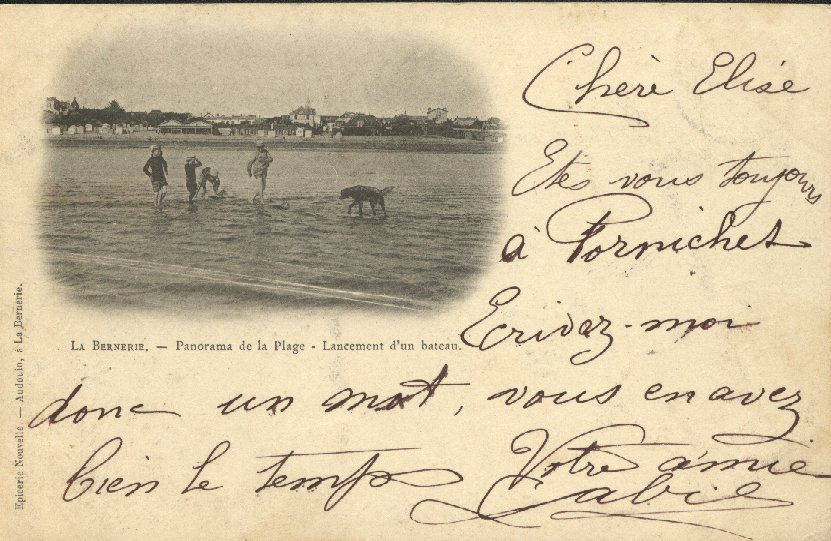 Chère Elise
Etes vous toujours
à Pornichet
Ecrivez-moi
donc un mot, vous en avez
bien le temps Votre amie
LA BERNERIE. — Panorama de la Plage - Lancement d'un bateau.
Epicerie Nouvelle. — Audouin, à La Bernerie.